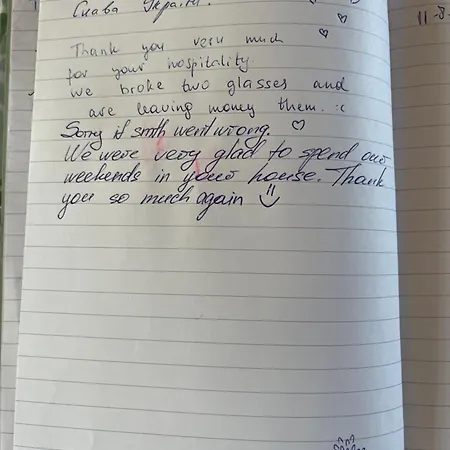 Слава Україні.
Thank you very much
for your hospitality
we broke two glasses and
are leaving money them. :c
Sorry if smth went wrong. ♡
We were very glad to spend our
weekends in your house. Thank
you so much again